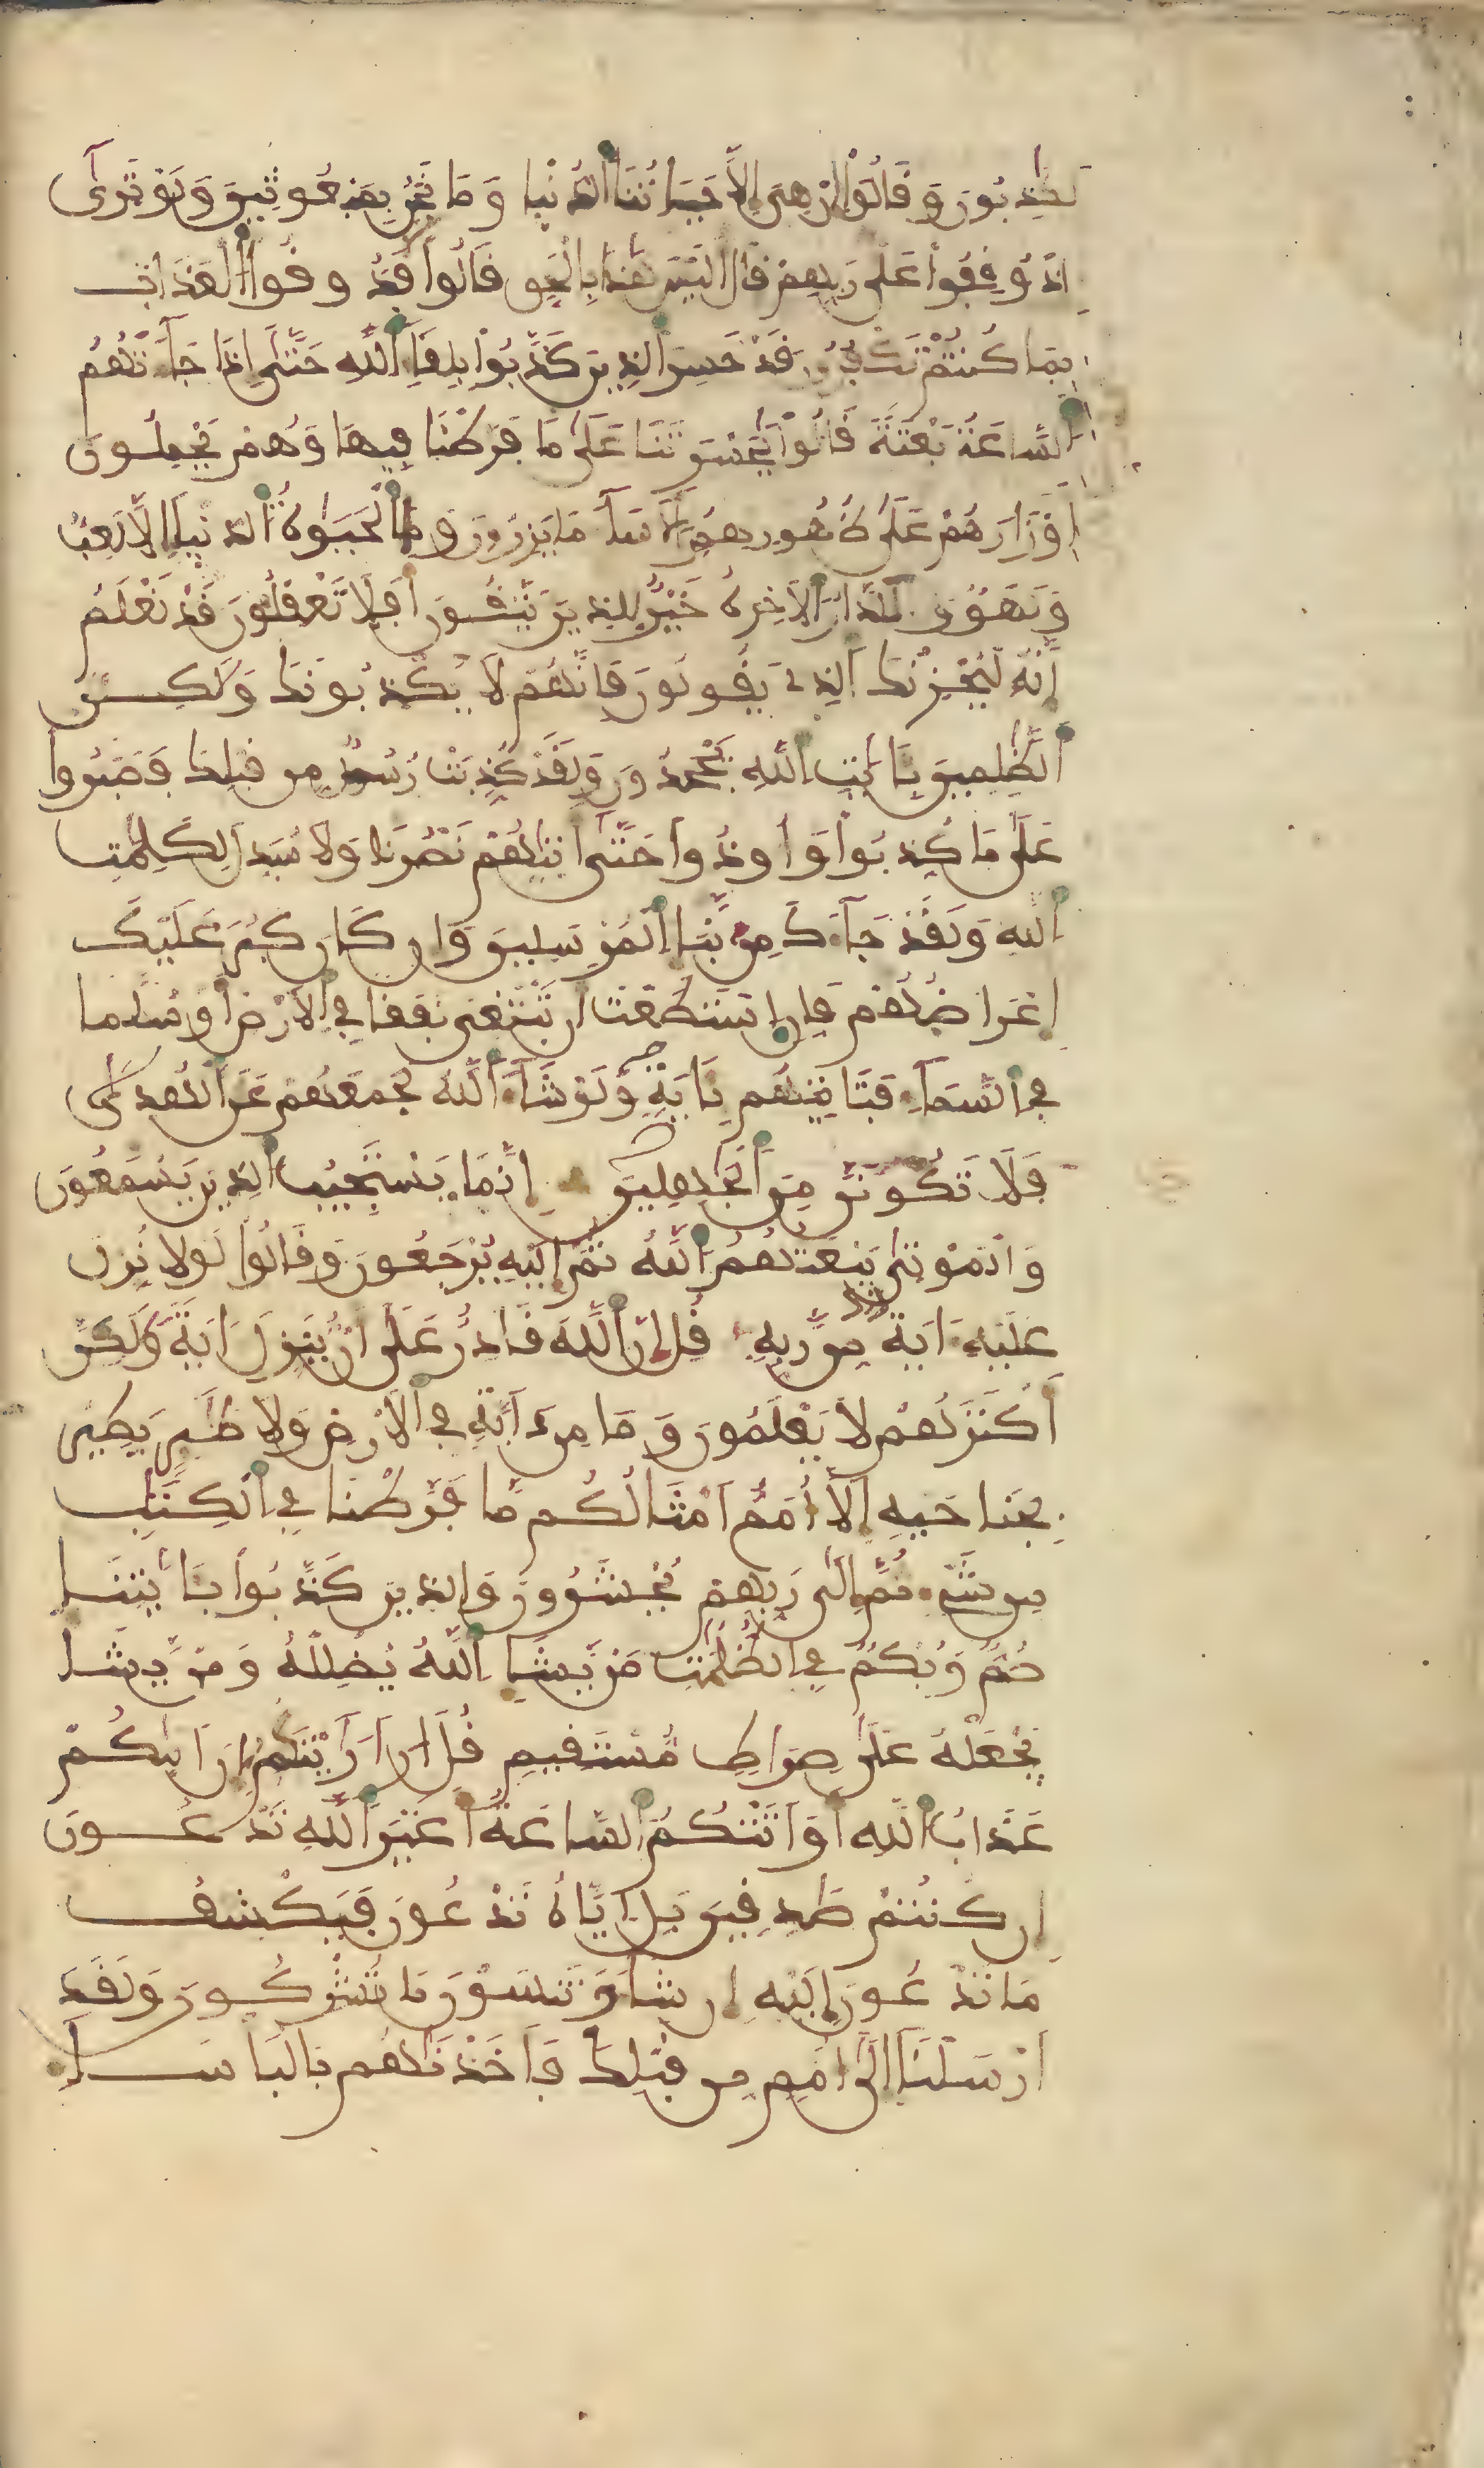 لكذبون وقالوا إن هي إلا حياتنا الدنيا وما نحن بمبعوثين ولو ترى
إذ وقفوا على ربهم قال أليس هذا بالحق قالوا فذوقوا العذاب
بما كنتم تكفرون قد خسر الذين كذبوا بلقاء الله حتى إذا جاءتهم
الساعة بغتة قالوا يحسرتنا على ما فرطنا فيها وهم يحملون
أوزارهم على ظهورهم ألا ساء ما يزرون وما الحيوة الدنيا إلا لعب
ولهو وللدار الآخرة خير للذين يتقون أفلا تعقلون قد نعلم
إنه ليحزنك الذي يقولون فإنهم لا يكذبونك ولكن
الظلمين بايت الله يجحدون ولقد كذبت رسل من قبلك فصبروا
على ما كذبوا وأوذوا حتى أتيهم نصرنا ولا مبدل لكلمت
الله ولقد جاءك من نبإ المرسلين وإن كان كبر عليك
إعراضهم فإن استطعت أن تبتغي نفقا في الأرض أو سلما
في السماء فتأتيهم باية ولو شاء الله لجمعهم على الهدى
فلا تكونن من الجهلين إنما يستجيب الذين يسمعون
والموتى يبعثهم الله ثم إليه يرجعون وقالوا لولا نزل
عليه ءاية من ربه قل إن الله قادر على أن ينزل ءاية ولكن
أكثرهم لا يعلمون وما من دابة في الأرض ولا طير يطير
بجناحيه إلا أمم أمثالكم ما فرطنا في الكتب
من شيء ثم إلى ربهم يحشرون والذين كذبوا بايتنا
صم وبكم في الظلمت من يشإ الله يضلله ومن يشا
يجعله على صراط مستقيم قل أرأيتكم إن أتيكم
عذاب الله أو أتتكم الساعة أغير الله تدعون
إن كنتم صدقين بل إياه تدعون فيكشف
ما تدعون إليه إن شاء وتنسون ما تشركون ولقد
أرسلنا إلى أمم من قبلك فأخذنهم بالبأساء